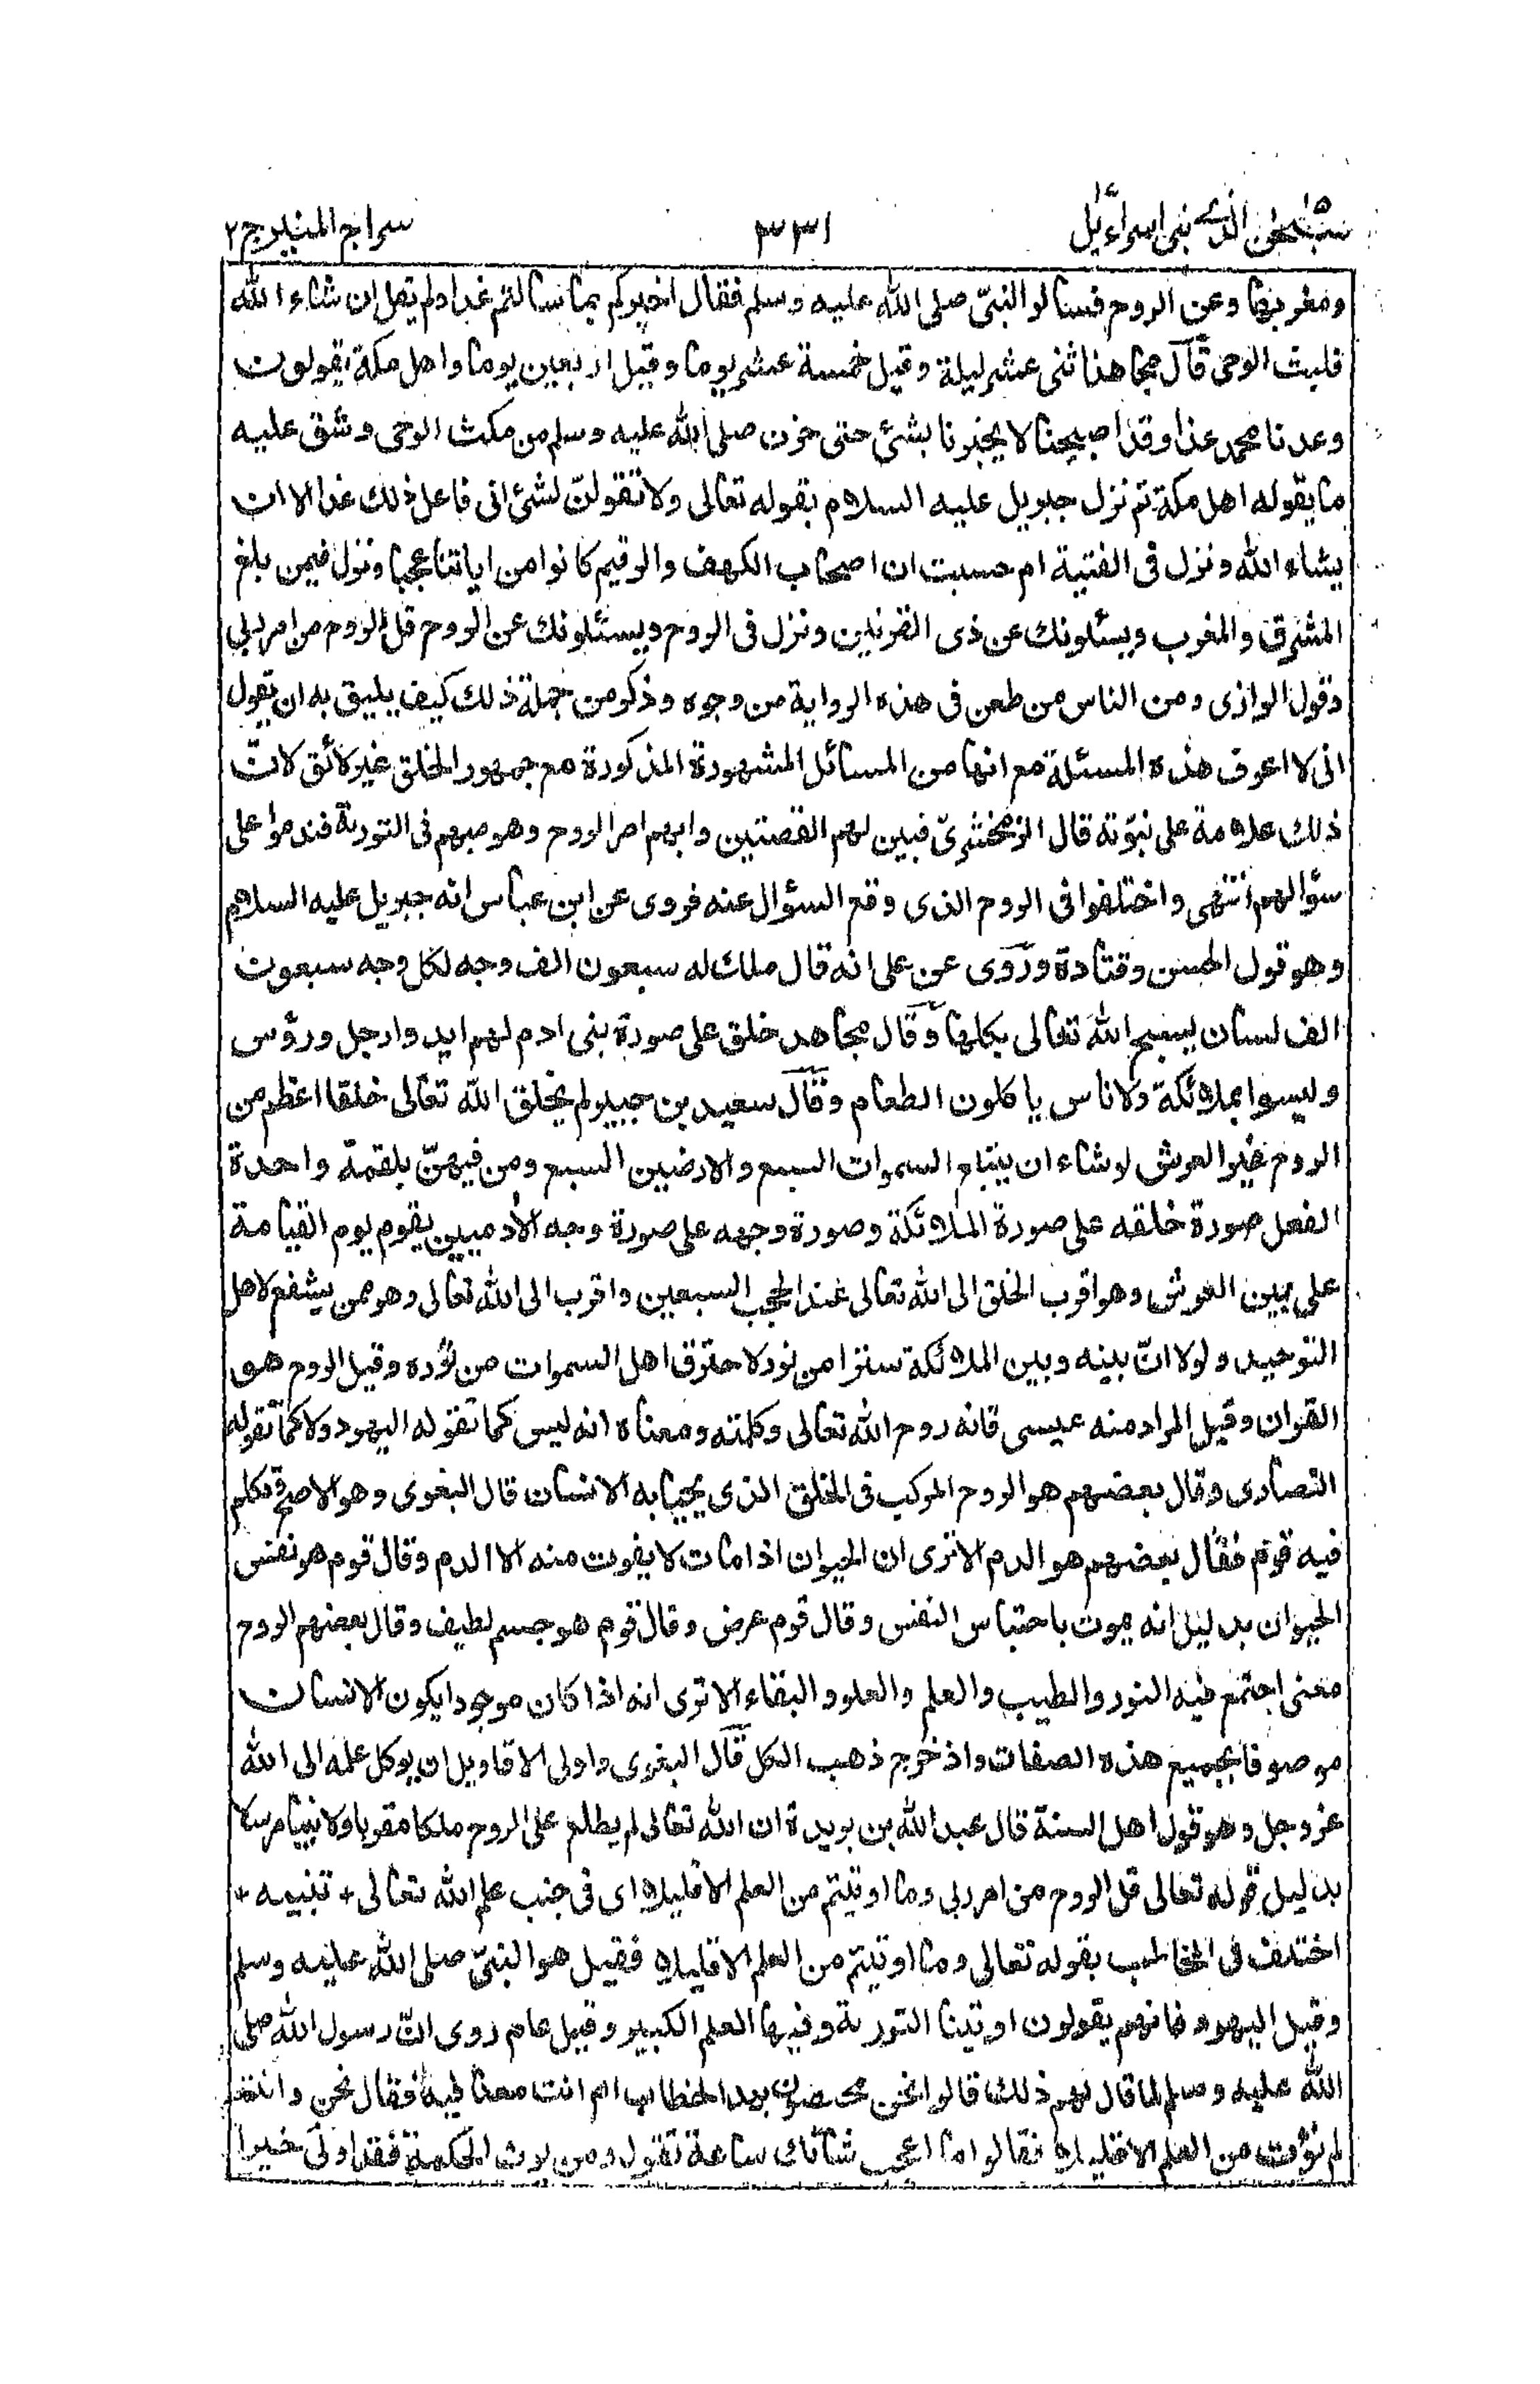 سبحٰن الذے ١٥ بنی اسراءیل ١٧
٣٣١
سراج المنیر ج ٢
ومغربها وعن الروح فسالوا النبیّ صلی الله علیه وسلم فقال اخبرکم بما سالتم غدا ولم یقل ان شاء الله
فلبث الوحی قال مجاهد اثنی عشر لیلة وقیل خمسة عشر یوما وقیل اربعین یوما واهل مکة یقولون
وعدنا محمد غدا وقد اصبحنا لا یخبرنا بشئ حتی حزن صلی الله علیه وسلم من مکث الوحی وشق علیه
ما یقوله اهل مکة ثم نزل جبریل علیه السلام بقوله تعالی ولا تقولنّ لشئ انی فاعل ذلك غدا الا ان
یشاء الله ونزل فی الفتیة ام حسبت ان اصحاب الکهف والرقیم کانوا من ایاتنا عجبا ونزل فیمن بلغ
المشرق والمغرب ویسئلونك عن ذی القرنین ونزل فی الروح ویسئلونك عن الروح قل الروح من امر ربی
وقول الرازی ومن الناس من طعن فی هذه الروایة من وجوه وذکر من جملة ذلك کیف یلیق به ان یقول
انی لا اعرف هذه المسئلة مع انها من المسائل المشهورة المذکورة مع جمهور الخلق غیر لائق لانّ
ذلك علامة علی نبوّته قال الزمخشریّ فبین لهم القصتین وابهم امر الروح وهو مبهم فی التوریة فندموا علی
سؤالهم انتهی واختلفوا فی الروح الذی وقع السؤال عنه فروی عن ابن عباس انه جبریل علیه السلام
وهو قول الحسن وقتادة وروی عن علی انه قال ملك له سبعون الف وجه لکل وجه سبعون
الف لسان یسبح الله تعالی بکلها وقال مجاهد خلق علی صورة بنی ادم لهم اید وارجل ورؤس
ولیسوا بملائکة ولا ناس یاکلون الطعام وقال سعید بن جبیر لم یخلق الله تعالی خلقا اعظم من
الروح غیر العرش لو شاء ان یبتلع السموات السبع والارضین السبع ومن فیهنّ بلقمة واحدة
لفعل صورة خلقه علی صورة الملائکة وصورة وجهه علی صورة وجه الأدمیین یقوم یوم القیامة
علی یمین العرش وهو اقرب الخلق الی الله تعالی عند الحجب السبعین واقرب الی الله تعالی وهو ممن یشفع لاهل
التوحید ولولا انّ بینه وبین الملائکة سترا من نور لاحترق اهل السموات من نوره وقیل الروح هو
القران وقیل المراد منه عیسی فانه روح الله تعالی وکلمته ومعناه انه لیس کما تقوله الیهود ولا کما تقوله
النصاری وقال بعضهم هو الروح المرکب فی الخلق الذی یحیا به الانسان قال البغوی وهو الاصح وتکلم
فیه قوم فقال بعضهم هو الدم الا تری ان الحیوان اذا مات لا یفوت منه الا الدم وقال قوم هو نفس
الحیوان بدلیل انه یموت باحتباس النفس وقال قوم عرض وقال قوم هو جسم لطیف وقال بعضهم الروح
معنی اجتمع فیه النور والطیب والعلم والعلو والبقاء الا تری انه اذا کان موجودا یکون الانسان
موصوفا بجمیع هذه الصفات واذ خرج ذهب الکل قال البغوی واولی الاقاویل ان یوکل علمه الی الله
عز وجل وهو قول اهل السنة قال عبد الله بن بریدة ان الله تعالی لم یطلع علی الروح ملکا مقربا ولا نبیا مرسلا
بدلیل قوله تعالی قل الروح من امر ربی وما اوتیتم من العلم الا قلیلا ای فی جنب علم الله تعالی + تنبیه +
اختلف فی المخاطب بقوله تعالی وما اوتیتم من العلم الا قلیلا فقیل هو النبیّ صلی الله علیه وسلم
وقیل الیهود فانهم یقولون اوتینا التوریة وفیها العلم الکبیر وقیل عام روی انّ رسول الله صلی
الله علیه وسلم لما قال لهم ذلك قالوا نحن مختصون بهذا الخطاب ام انت معنا فیه فقال نحن وانتم
لم نؤت من العلم الا قلیلا فقالوا ما اعجب شأنك ساعة تقول ومن یؤت الحکمة فقد اوتی خیرا